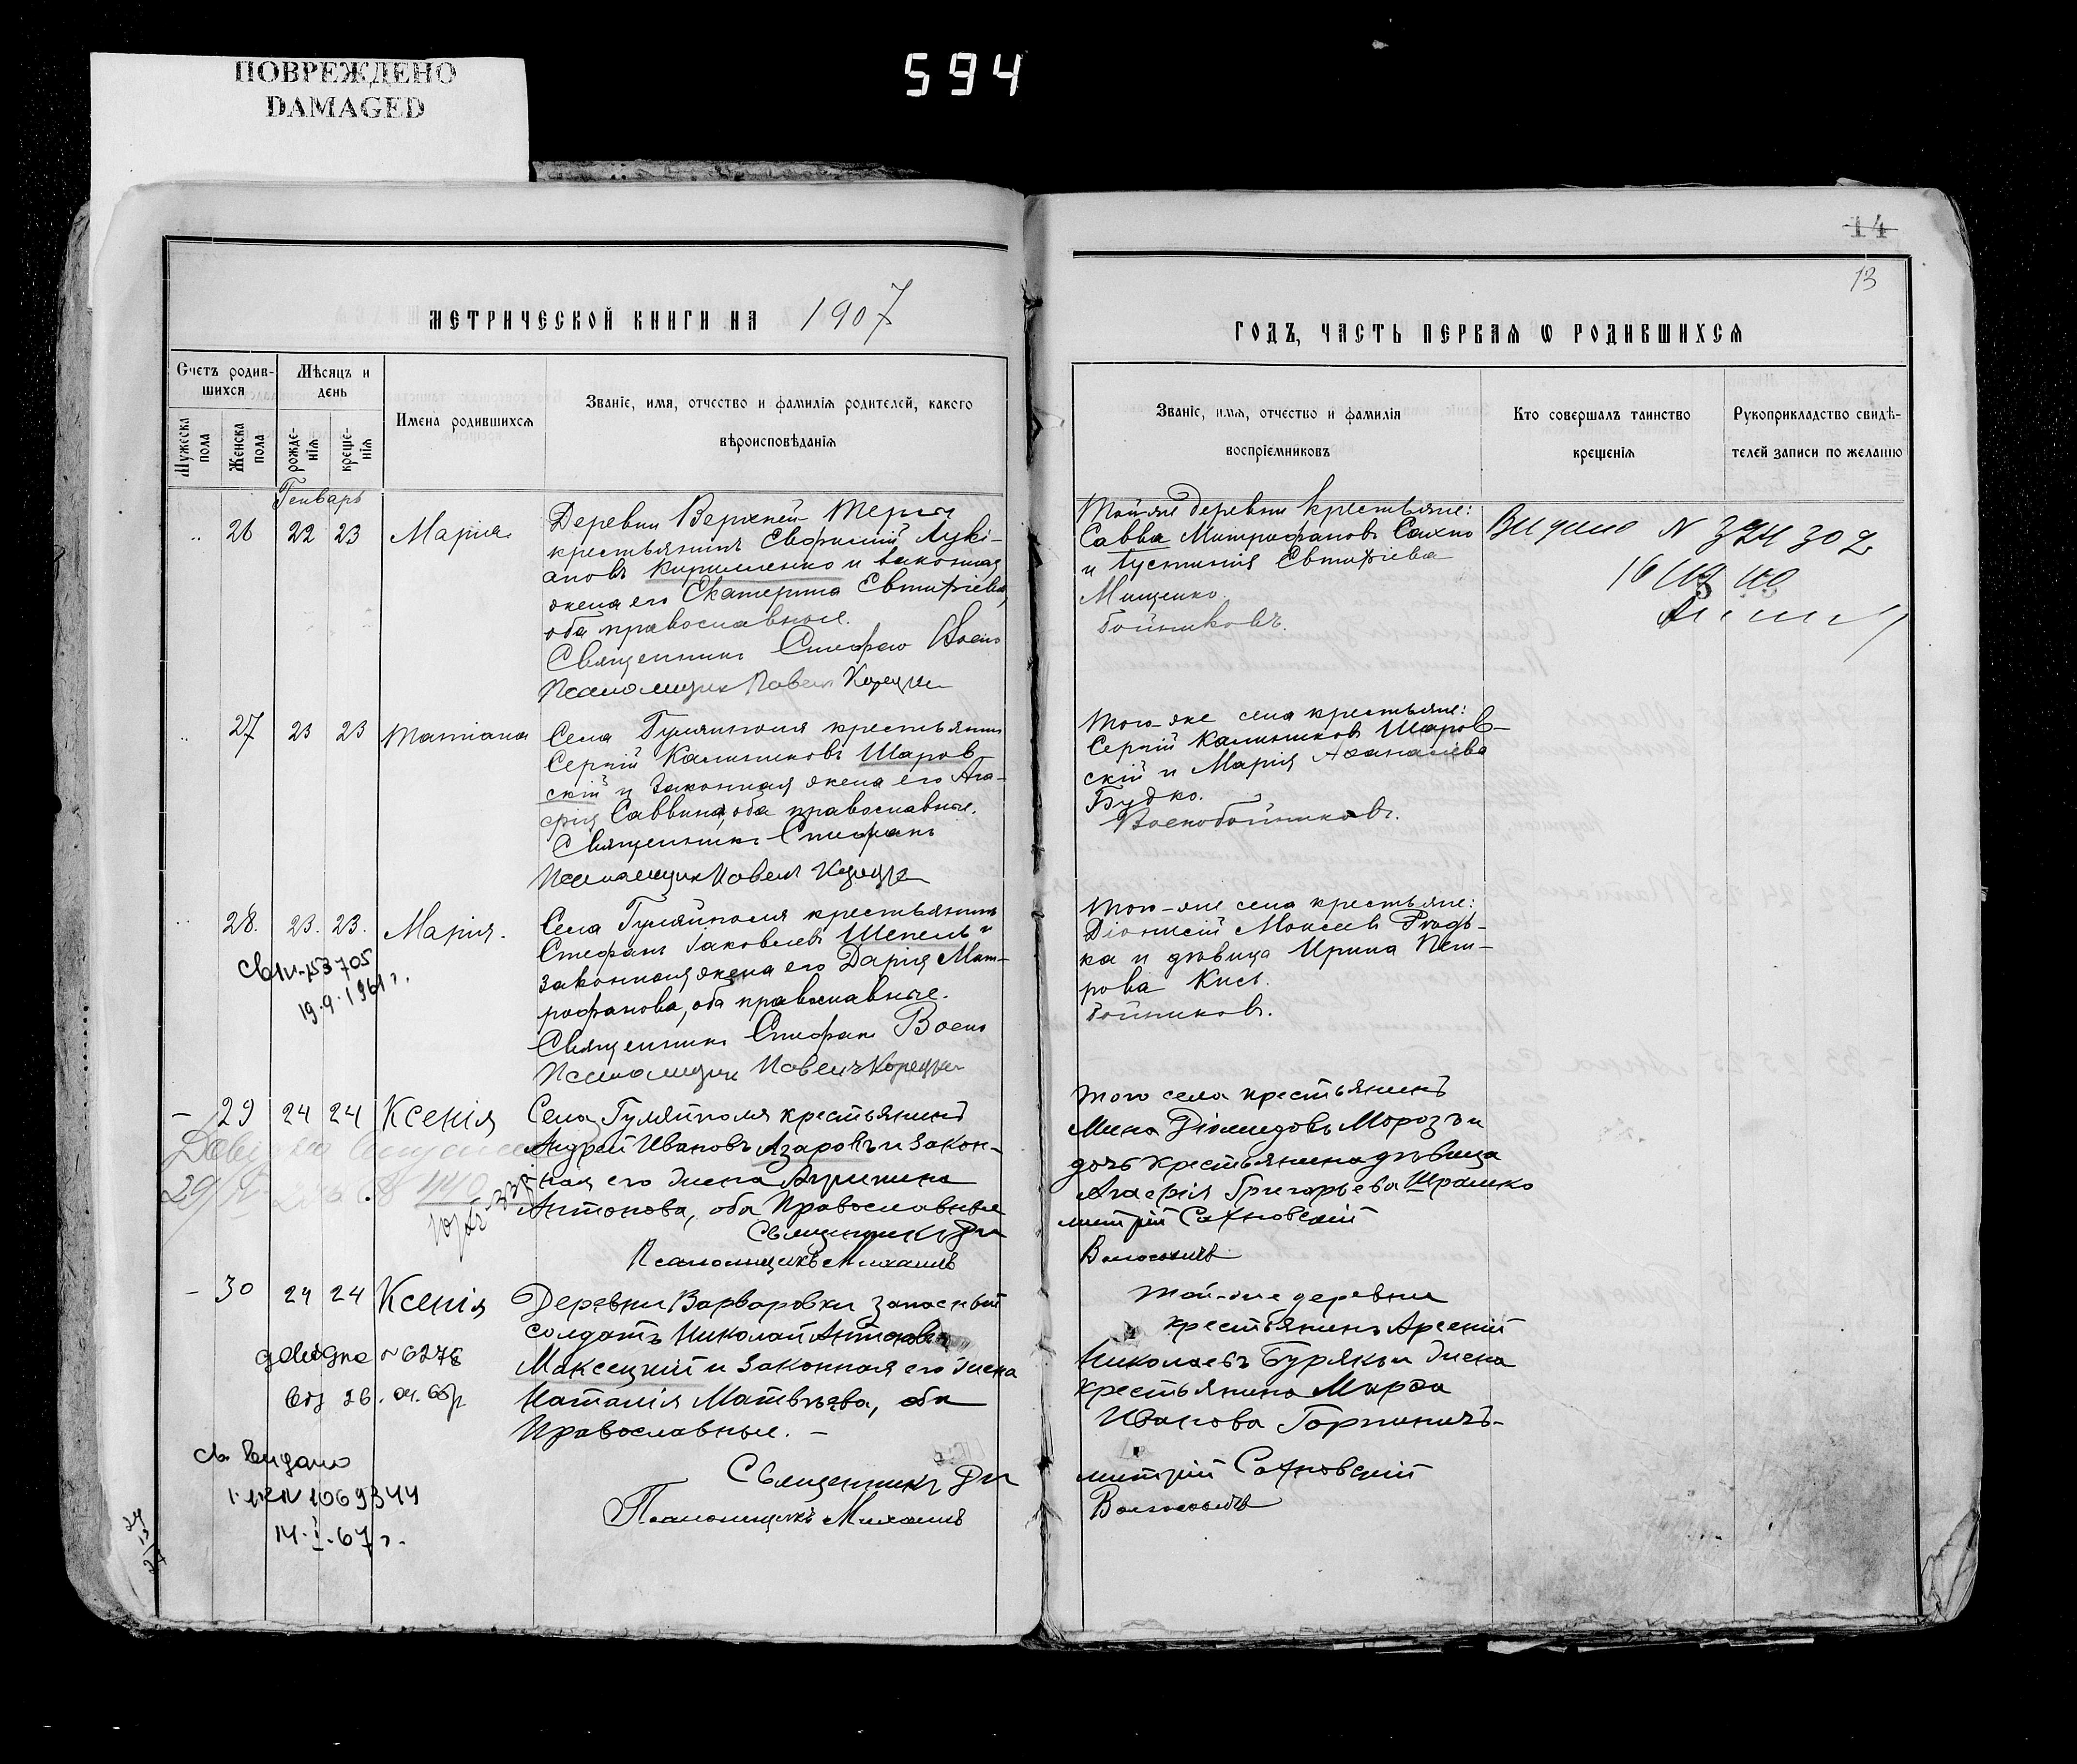 ПОВРЕЖДЕНО
DAMAGED
594
14
13
МЕТРИЧЕСКОЙ КНИГИ НА 1907
ГОДЪ, ЧАСТЬ ПЕРВАѦ Ѡ РОДИВШИХСѦ
Счетъ родив-
шихся
Мужеска пола
Женска пола
Мѣсяцъ и
день
рожде-
нія
креще-
нія
Имена родившихсѧ
Званіе, имя, отчество и фамиліѧ родителей, какого
вѣроисповѣданіѧ
Званіе, имѧ, отчество и фамилія
воспріемниковъ
Кто совершалъ таинство
крещеніѧ
Рукоприкладство свидѣ-
телей записи по желанію
Генварь
26 22 23 Марія
Деревни Верхней Терсы
крестьянинъ Евфимій Лукі-
ановъ Кириленко и законная
жена его Екатерина Евтихіева,
оба православные.
Священникъ Стефанъ Воено
Псаломщик Павел
Той же деревни крестьяне:
Савва Митрофановъ Сахно
и Іустинія Евтихіева
Мищенко.
бойниковъ.
27 23 23 Татіана
Села Гуляйполя крестьянинъ
Сергій Калиниковъ Шаров-
скій и законная жена его Ага-
фія Саввина, оба православные.
Священникъ Стефанъ
Псаломщик Павел
Того-же села крестьяне:
Сергій Калиниковъ Шаров-
скій и Марія Аѳанасіева
Будко.
Военобойниковъ.
28. 23. 23. Марія.
19.9.1961 г.
Села Гуляйполя крестьянинъ
Стефанъ Іаковлевъ Шепель и
законная жена его Дарія Мит-
рофанова, оба православные.
Священникъ Стефанъ Воено
Псаломщик Павел
Того-же села крестьяне:
Діонисій Моисеевъ Рѣдь-
ка и дѣвица Ирина Пет-
рова
бойниковъ.
- 29 24 24 Ксенія
Села Гуляйполя крестьянинъ
Андрей Ивановъ Азаровъ и закон-
ная его жена Агрипина
Антонова, оба Православные
Священникъ Ди
Псаломщикъ Михаилъ
Того села крестьянинъ
Мина Діомидовъ Морозъ и
дочь крестьянина дѣвица
Агафія Григорьева Шрамко
митрій Сахновскій
- 30 24 24 Ксенія
26.
14.I.67 г.
Деревни Варваровки запасный
солдатъ Николай Антоновъ
Максецкій и законная его жена
Наталія Матвѣева, оба
Православные. -
Священникъ Ди
Псаломщикъ Михаилъ
Той-же деревни
крестьянинъ Арсеній
Николаевъ Бурякъ и жена
крестьянина Марѳа
Иванова Горпиничъ-
митрій Сахновскій